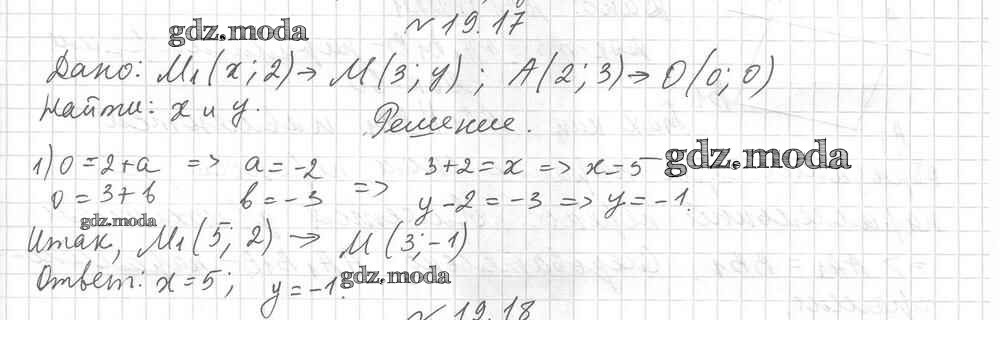 № 19.17
gdz.moda
Дано: M₁(x; 2) → M(3; y); A(2; 3) → O(0; 0)
Найти: x и y.
Решение.
1) 0 = 2 + a => a = -2 3 + 2 = x => x = 5
gdz.moda
0 = 3 + b b = -3 => y - 2 = -3 => y = -1.
gdz.moda
Итак, M₁(5; 2) → M(3; -1)
Ответ: x = 5; y = -1.
gdz.moda
№ 19.18